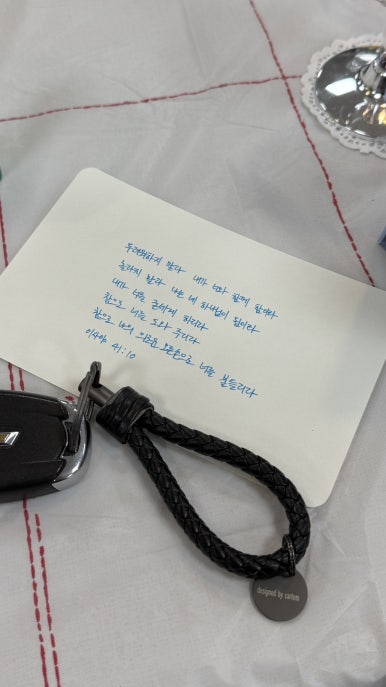 두려워하지 말라 내가 너와 함께 함이라
놀라지 말라 나는 네 하나님이 됨이라
내가 너를 굳세게 하리라
참으로 너를 도와 주리라
참으로 나의 의로운 오른손으로 너를 붙들리라
이사야 41:10
designed by cartem